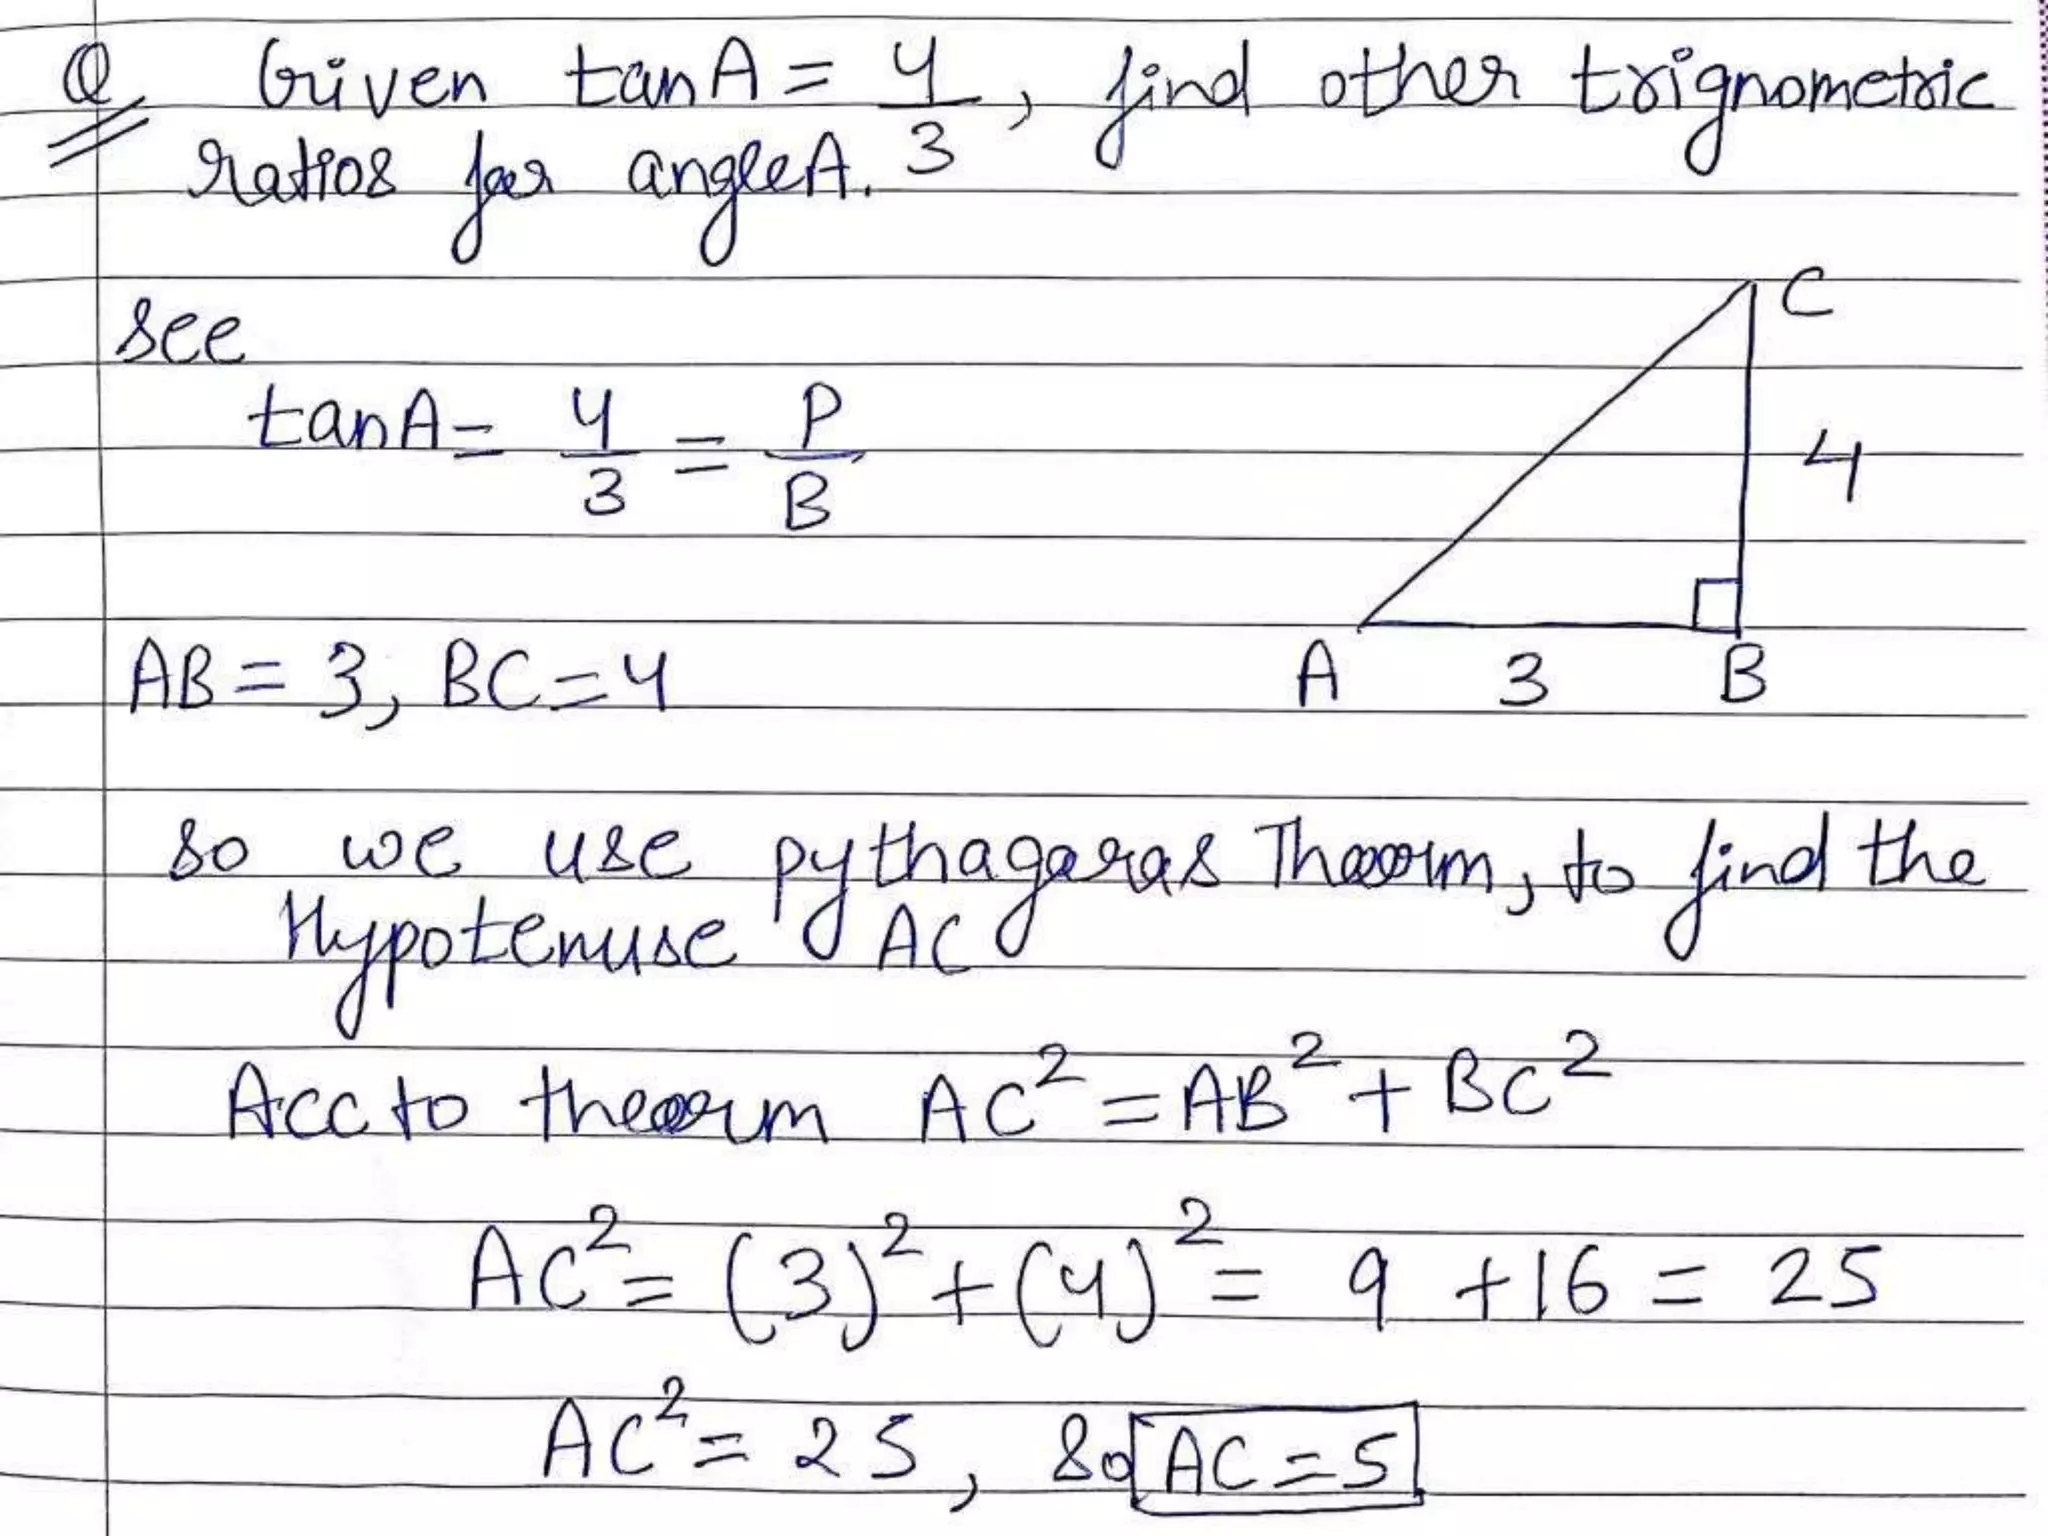 Q Given tanA = 4/3, find other trignometric
ratios for angleA.
C
see
tanA = 4/3 = P/B
4
AB = 3, BC = 4
A 3 B
so we use pythagoras Theorm, to find the
Hypotenuse AC
Acc to theorm AC² = AB² + BC²
AC² = (3)² + (4)² = 9 + 16 = 25
AC² = 25, so AC = 5